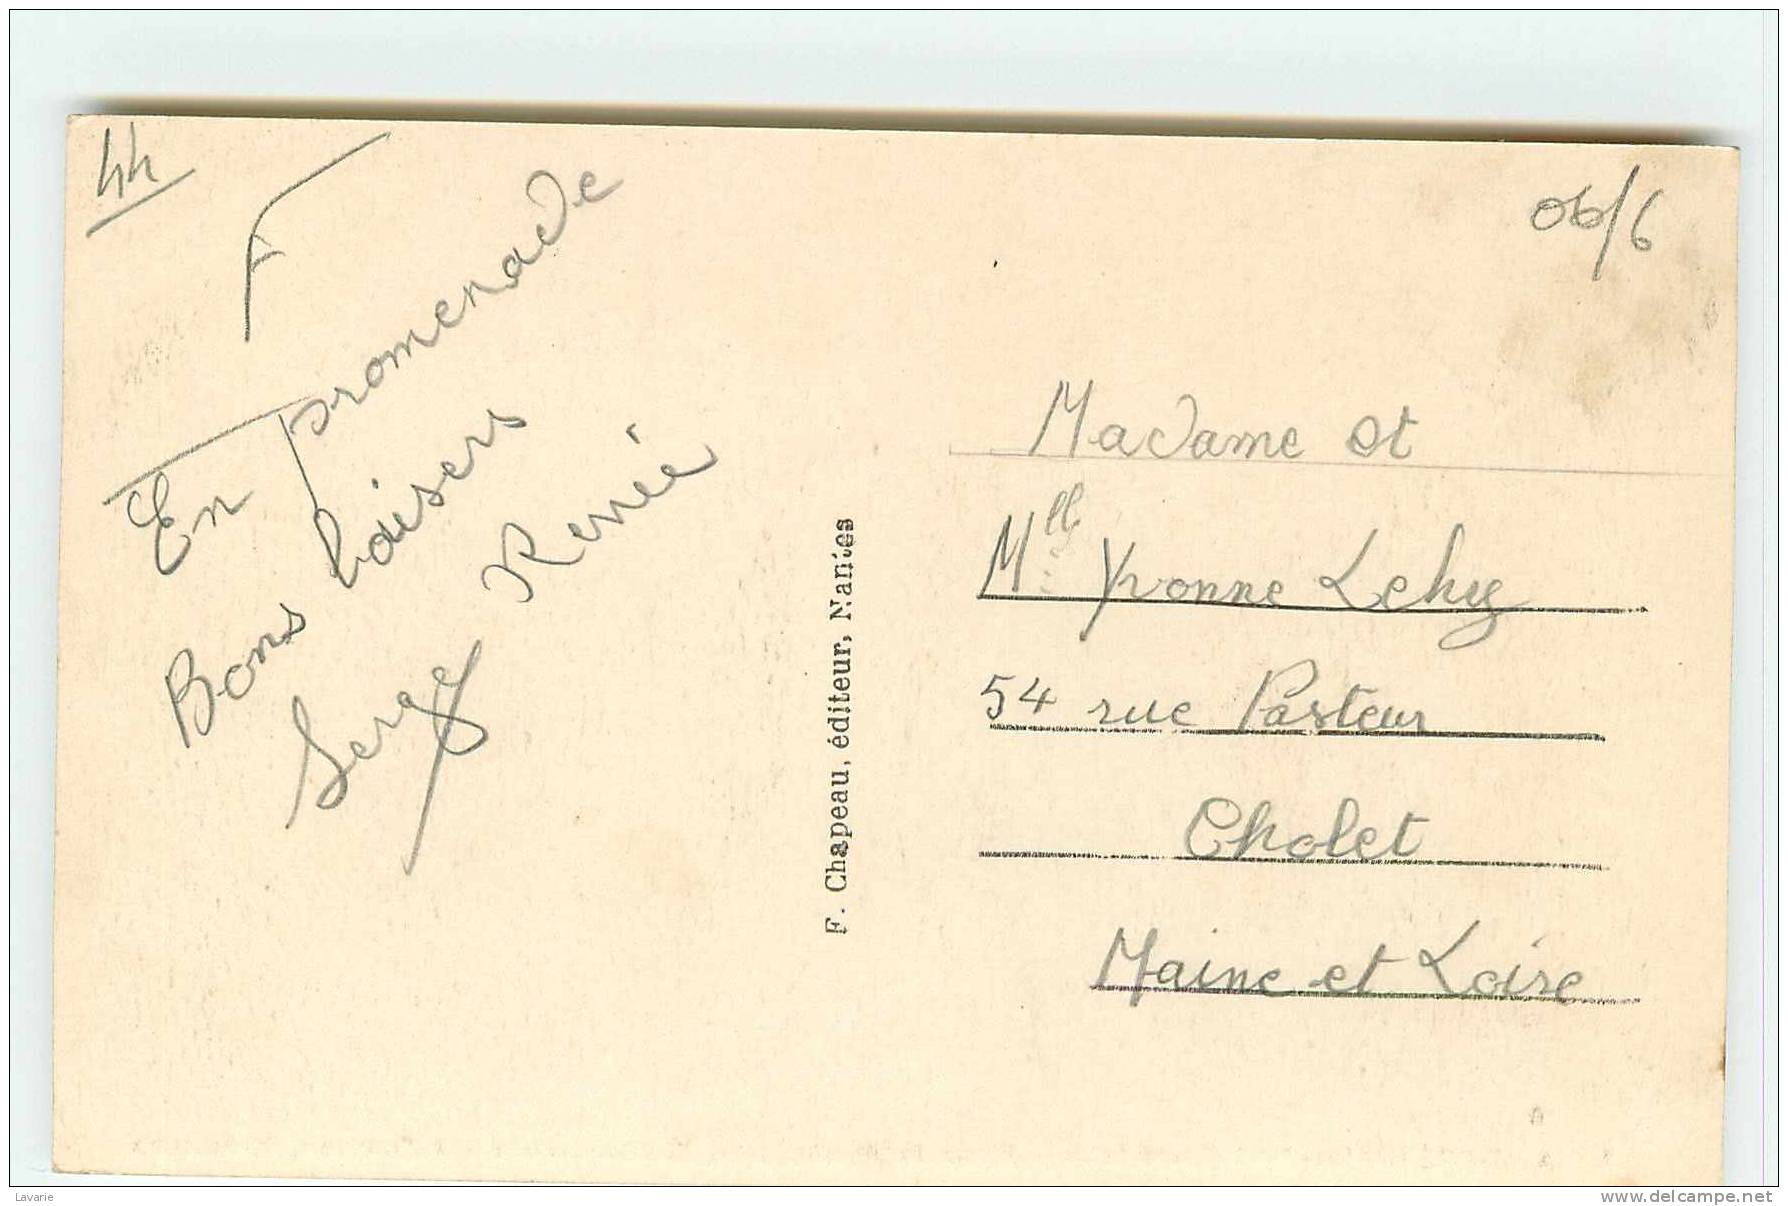 44
F
En promenade
Bons baisers
Serge Renée
F. Chapeau, éditeur, Nantes
06/6
Madame et
Mlle Yvonne Lehy
54 rue Pasteur
Cholet
Maine et Loire
Lavarie
www.delcampe.net